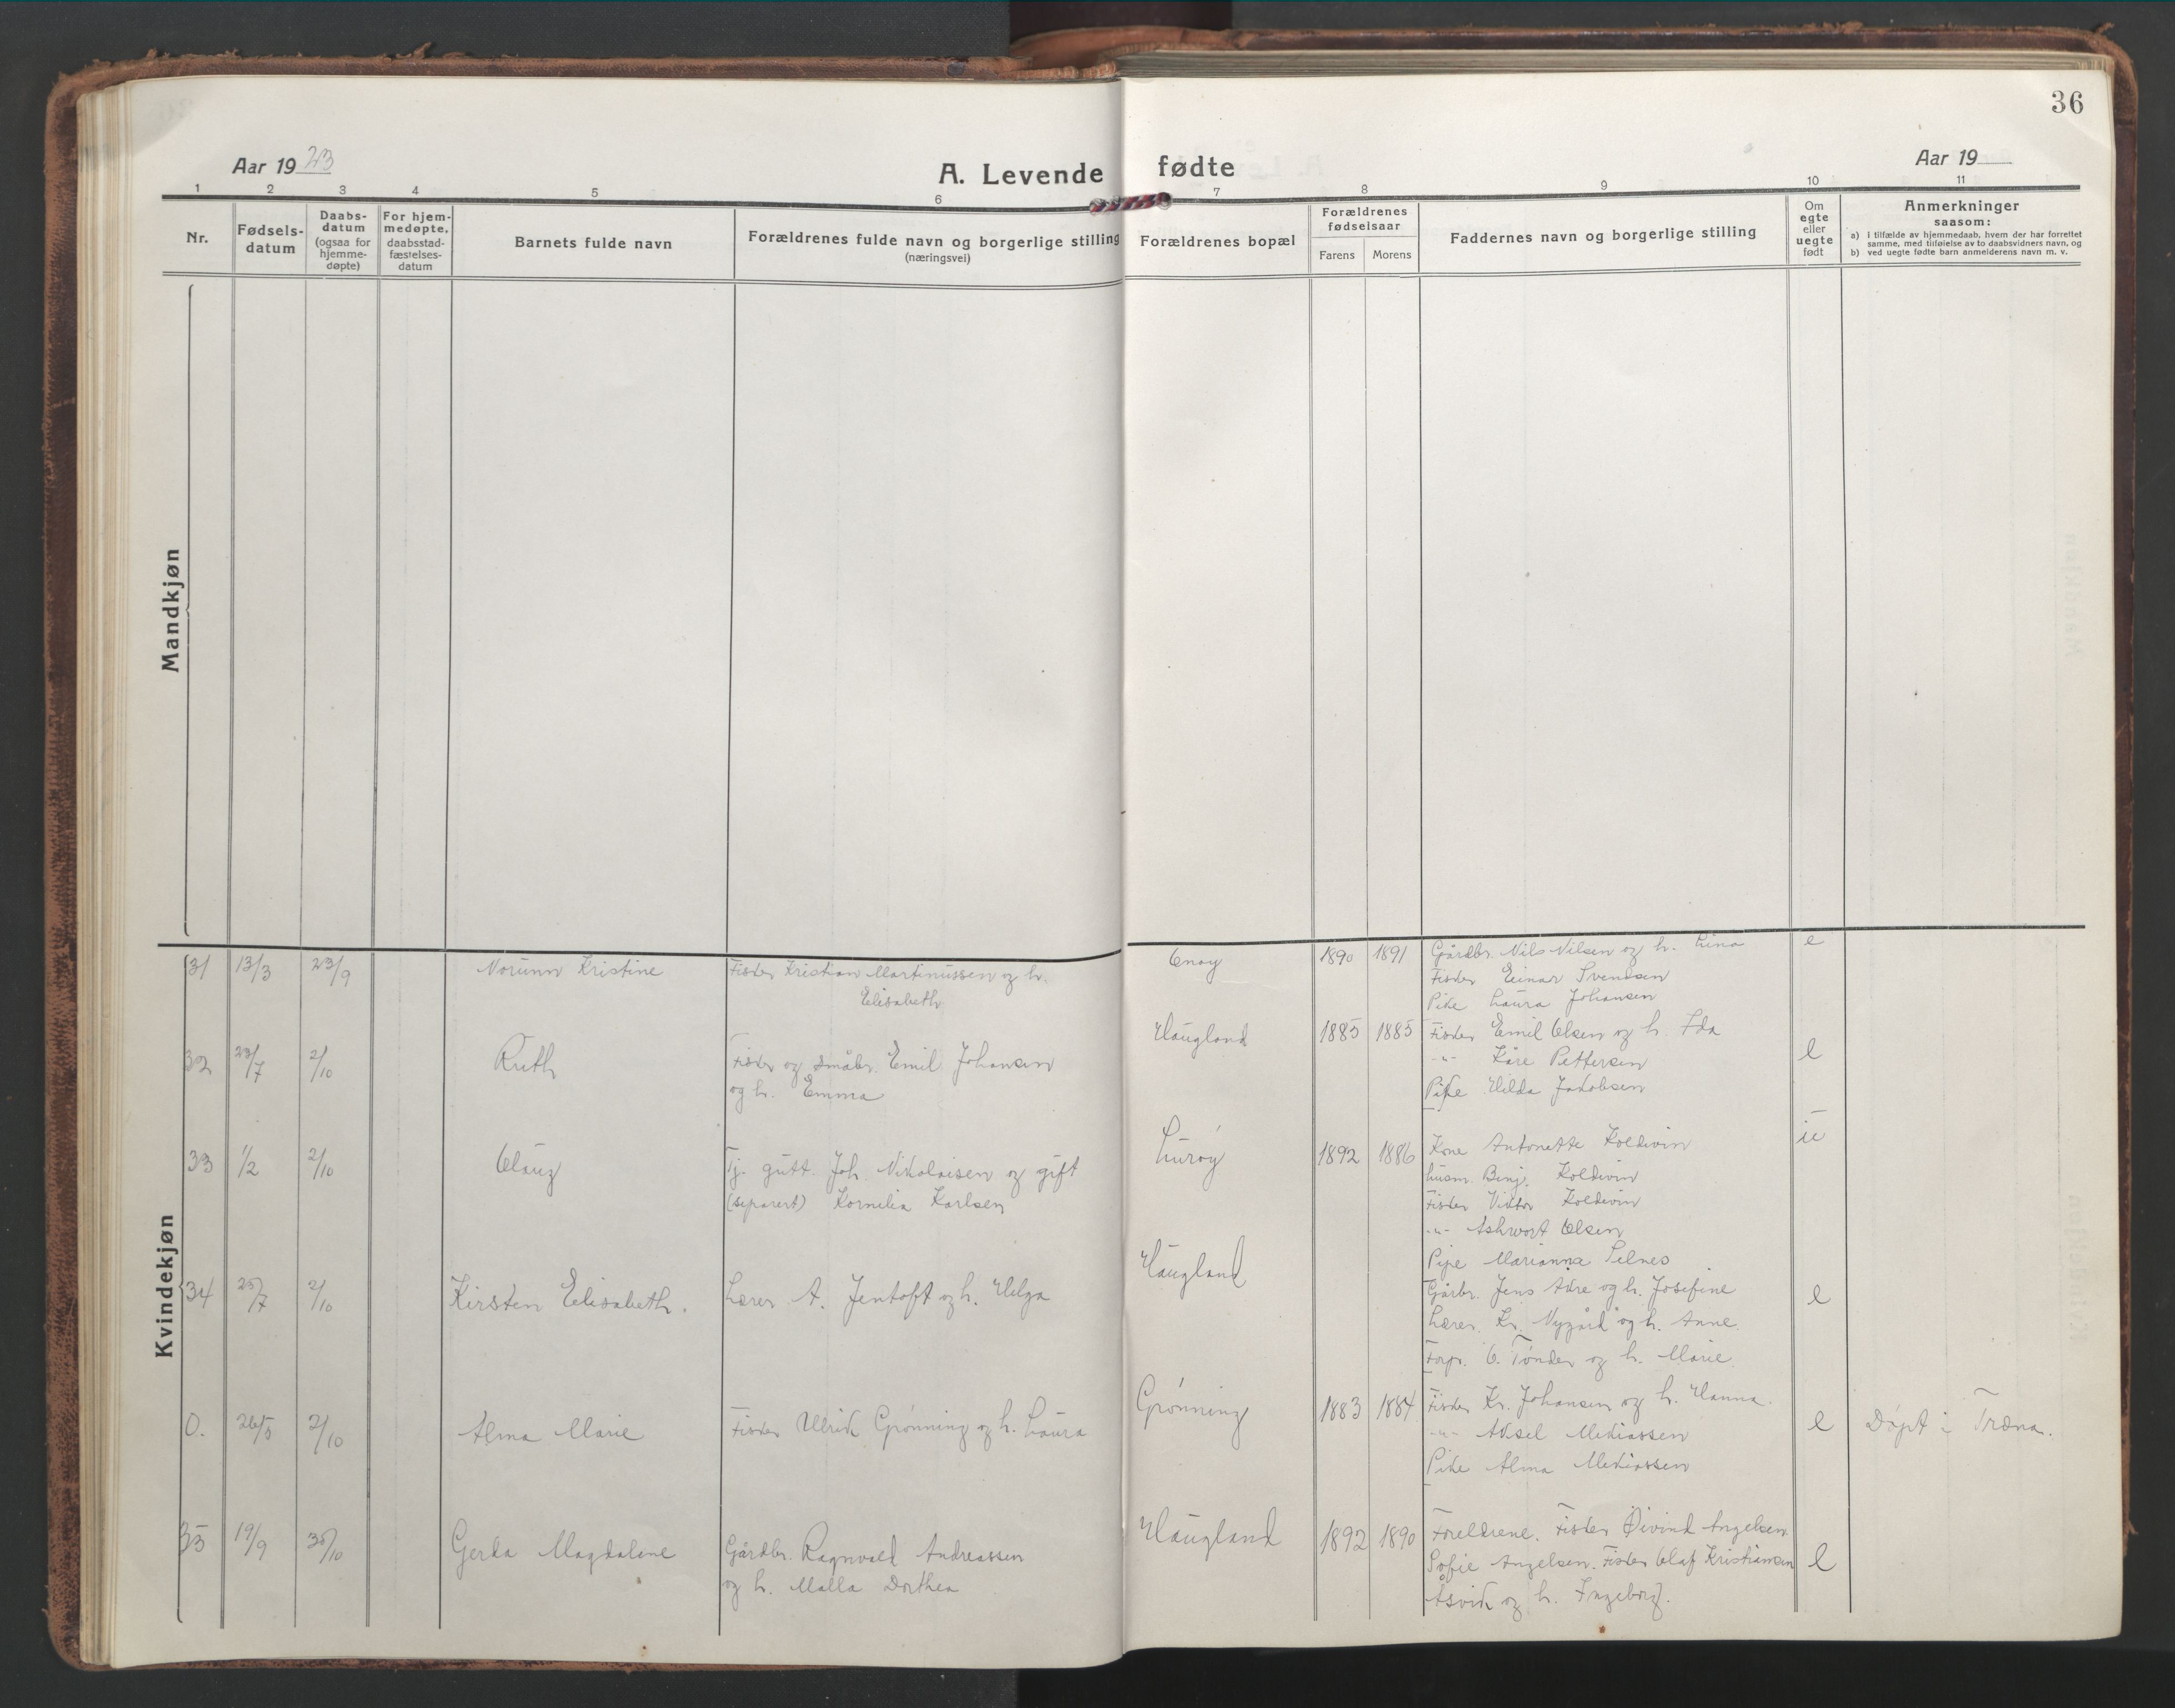 36
Aar 1923
A. Levende fødte
Aar 19
1 2 3 4 5 6 7 8 9 10 11
Nr.
Fødsels-
datum
Daabs-
datum
(ogsaa for
hjemme-
døpte)
For hjem-
medøpte,
daabsstad-
fæstelses-
datum
Barnets fulde navn
Forældrenes fulde navn og borgerlige stilling
(næringsvei)
Forældrenes bopæl
Forældrenes
fødselsaar
Farens Morens
Faddernes navn og borgerlige stilling
Om
egte
eller
uegte
født
Anmerkninger
saasom:
a) i tilfælde av hjemmedaab, hvem der har forrettet
samme, med tilføielse av to daabsvidners navn, og
b) ved uegte fødte barn anmelderens navn m. v.
Mandkjøn
Kvindekjøn
31 13/3 23/9 Norunn Kristine
Fisker Kristian Martinussen og h.
Elisabeth
1890 1891
Gårdbr. Nils Nilsen og h. Lina
Fisker Einar Svendsen
Pike Laura Johansen
e
32 23/7 2/10 Ruth
Fisker og småbr. Emil Johansen
og h. Emma
Haugland 1885 1885
Fisker Emil Olsen og h. Ida
-"- Kåre Pettersen
Pike Hilda Jakobsen
e
33 1/2 2/10 Olaug
Tj. gutt. Joh. Nikolaisen og gift
(separert) Kornelia Karlsen
Lurøy 1892 1886
Kone Antonette Koldevin
husm. Binj. Koldevin
Fisker Viktor Koldevin
-"- Ashwort Olsen
Pipe Marianna Selnes
u
34 25/7 2/10 Kirsten Elisabeth.
Lærer A. Jentoft og h. Helga
Haugland
Gårbr. Jens Akre og h. Josefine
Lærer Kr. Nygård og h. Anne
Forp. O. Tønder og h. Marie.
e
0. 26/5 2/10 Alma Marie
Fisker Ulrik Grønning og h. Laura
Grønning 1883 1884
Fisker Kr. Johansen og h. Hanna.
-"- Aksel Mekiassen
Pike Alma Mekiassen
e
Døpt i Træna.
35 19/9 30/10 Gerda Magdaline
Gårdbr. Ragnvald Andreassen
og h. Malla Dorthea
Haugland 1892 1890
Foreldrene. Fisker Øivind Angelsen
Sofie Angelsen. Fisker Olaf Kristiansen
Åsvik og h. Ingeborg.
e